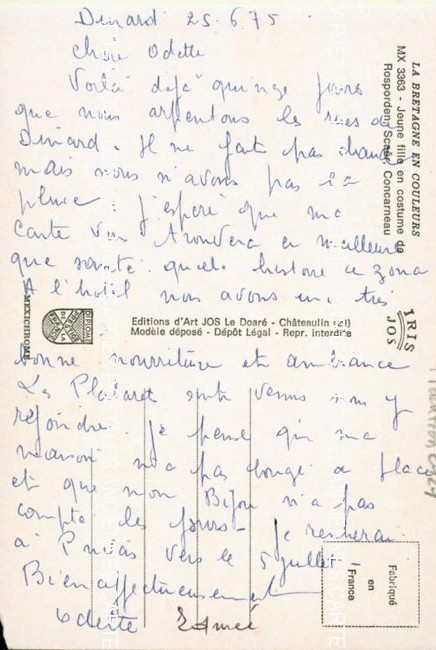 Dinard 25.6.75
Chère Odette
Voilà déjà quinze jours
que nous arpentons les rues de
Dinard. Il ne fait pas chaud
mais nous n'avons pas la
pluie. J'espère que ma
carte vous trouvera en meilleure
santé. quelle histoire ce zona
A l'hôtel nous avons une très
bonne nourriture et ambiance
Les sont venus nous y
rejoindre. Je pense que ma
maison n'a pas bougé de place
et que mon Bijou n'a pas
compté les jours - Je rentrerai
à vers le 5 juillet
Bien affectueusement
Odette Edmée
LA BRETAGNE EN COULEURS
MX 3363 - Jeune fille en costume de
Rosporden, Scaër, Concarneau
IRIS
JOS
Editions d'Art JOS Le Doaré - Châteaulin
Modèle déposé - Dépôt Légal - Repr. interdite
MEXICHROME
Fabriqué
en
France